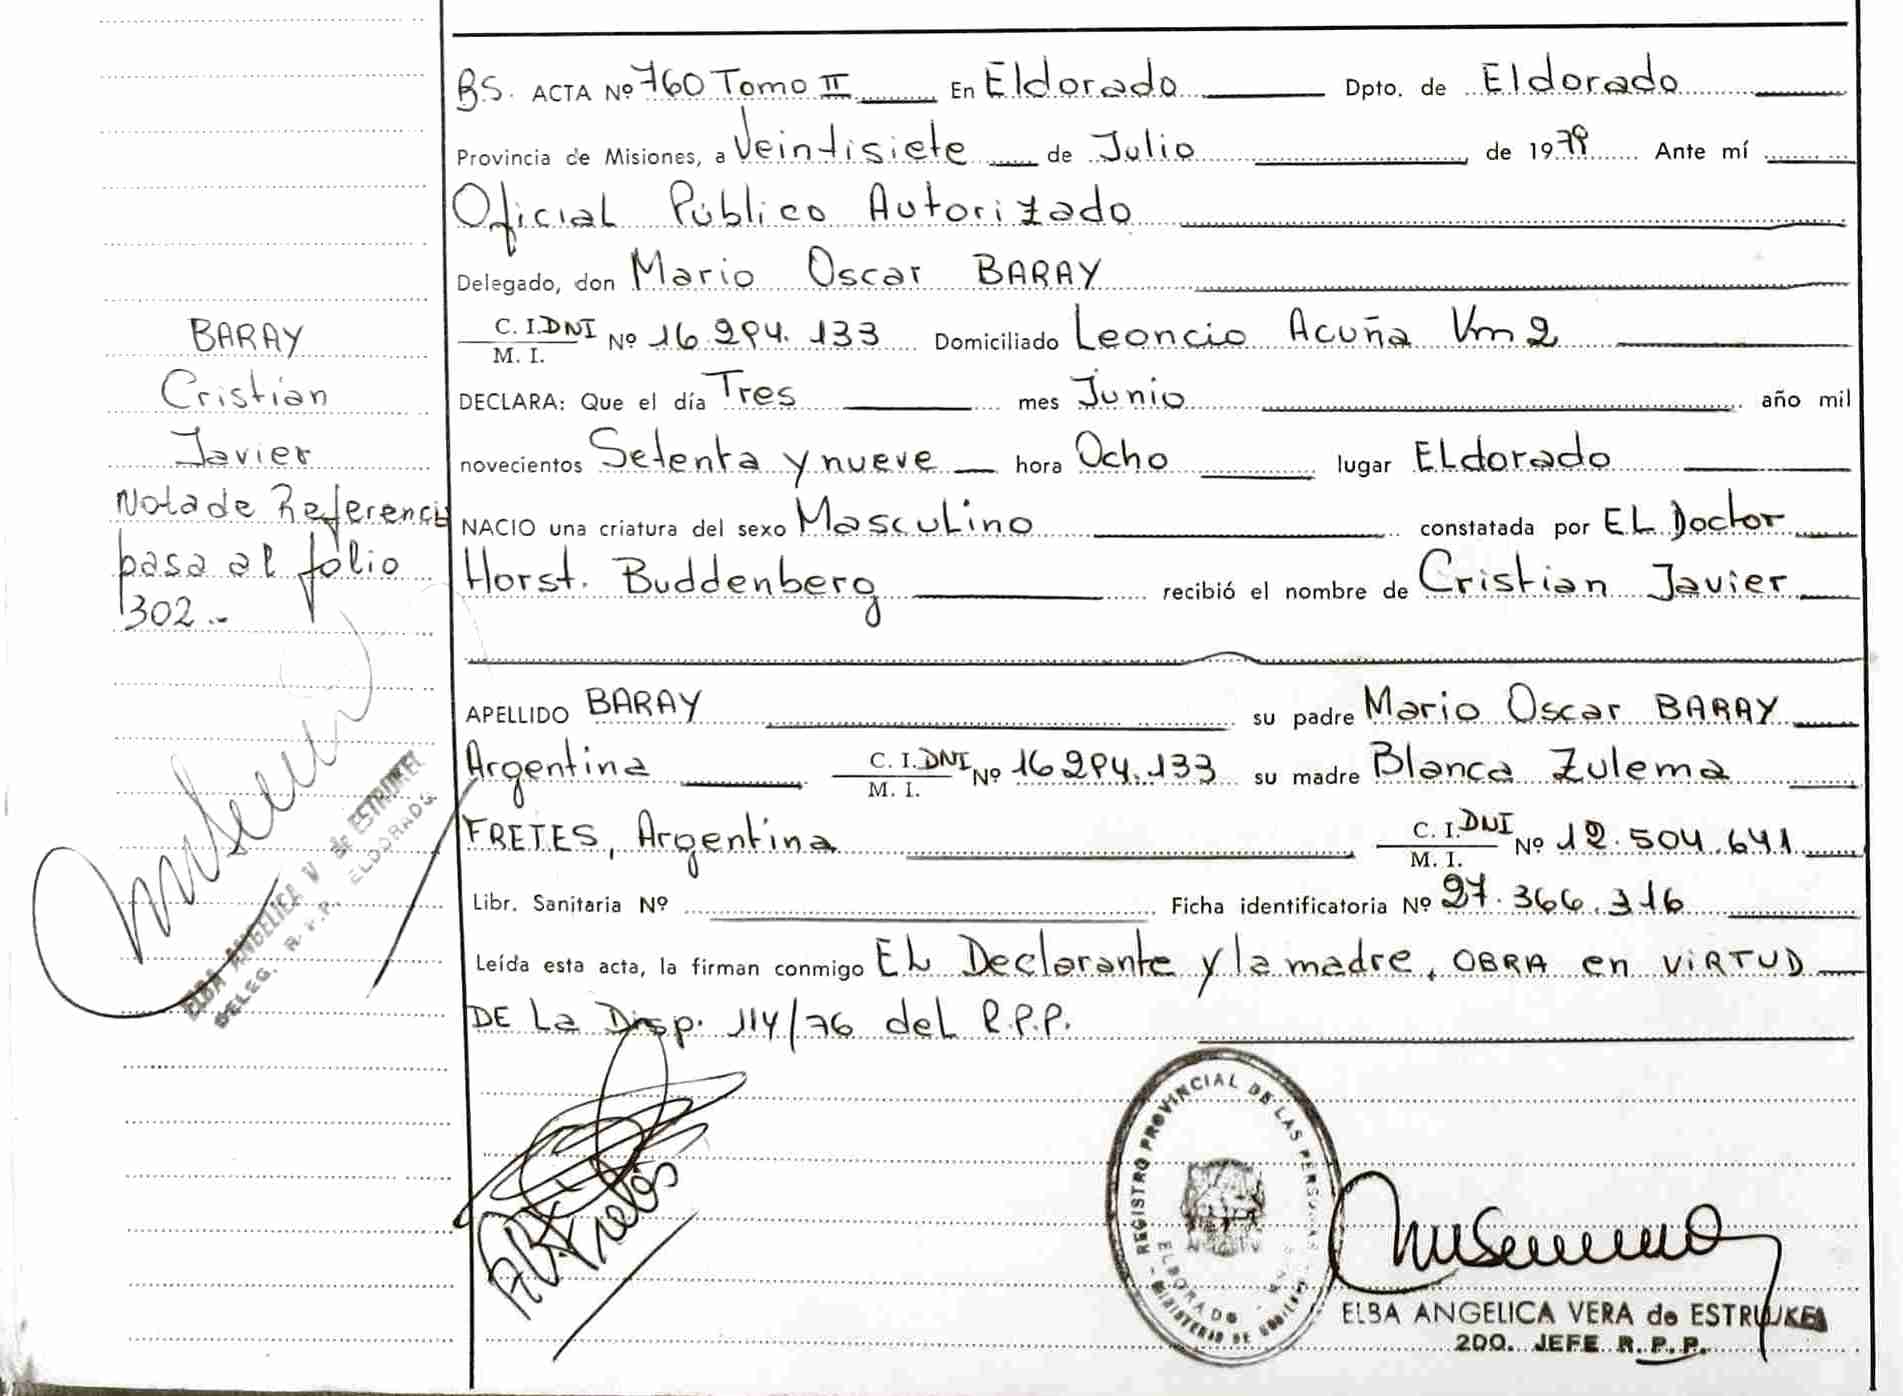 BS. ACTA Nº 760 Tomo II En Eldorado Dpto. de Eldorado
Provincia de Misiones, a Veintisiete de Julio de 1979 Ante mí
Oficial Público Autorizado
Delegado, don Mario Oscar BARAY
C. I. DNI
M. I. Nº 16.294.133 Domiciliado Leoncio Acuña Km 2
DECLARA: Que el día Tres mes Junio año mil
novecientos Setenta y nueve hora Ocho lugar ELdorado
NACIO una criatura del sexo Masculino constatada por EL Doctor
Horst. Buddenberg recibió el nombre de Cristian Javier
APELLIDO BARAY su padre Mario Oscar BARAY
Argentina C. I. DNI
M. I. Nº 16294.133 su madre Blanca Zulema
FRETES, Argentina C. I. DNI
M. I. Nº 12.504.641
Libr. Sanitaria Nº Ficha identificatoria Nº 27.366.316
Leída esta acta, la firman conmigo EL Declarante y la madre, OBRA en VIRTUD
DE La Disp. 114/76 del R.P.P.
BARAY
Cristian
Javier
Nota de Referencia
pasa al folio
302.-
ELBA ANGELICA V de ESTRUKEL
DELEG. R.P.P. ELDORADO
REGISTRO PROVINCIAL DE LAS PERSONAS
MINISTERIO DE GOBIERNO
ELDORADO
ELBA ANGELICA VERA de ESTRUKEL
2DO. JEFE R. P. P.